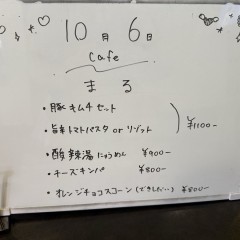 10月6日
cafe
まる
・豚キムチセット
・旨辛トマトパスタ or リゾット
¥1100-
・酸辣湯にゅうめん ¥900-
・チーズキンパ ¥800-
・オレンジチョコスコーン(できしだい…) ¥500-